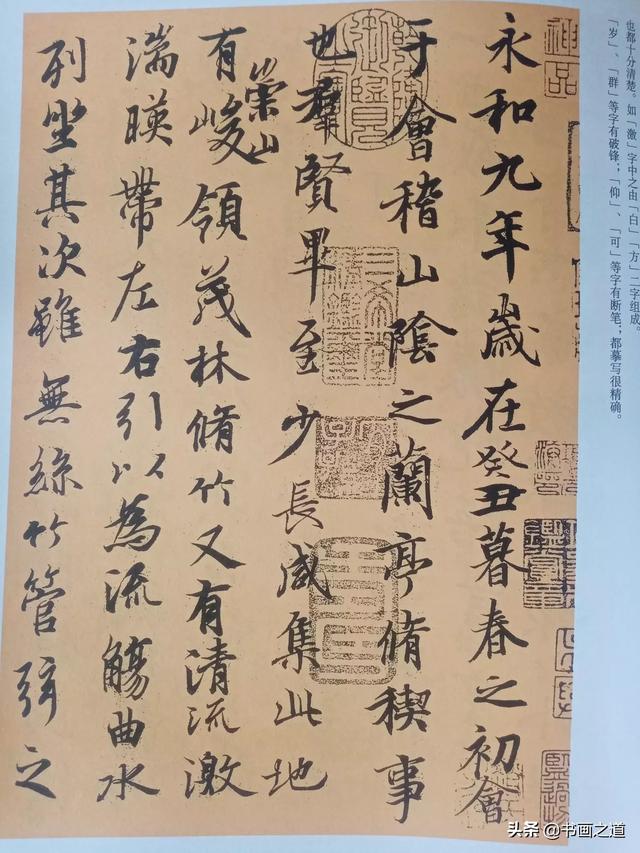 也都十分清楚。如「激」字中之由「白」「方」二字组成。
「岁」、「群」等字有破锋；「仰」、「可」等字有断笔；都摹写很精确。
永和九年歲在癸丑暮春之初會
于會稽山陰之蘭亭脩稧事
也羣賢畢至少長咸集此地
有崇山峻領茂林脩竹又有清流激
湍暎帶左右引以為流觴曲水
列坐其次雖無絲竹管弦之
头条 @书画之道